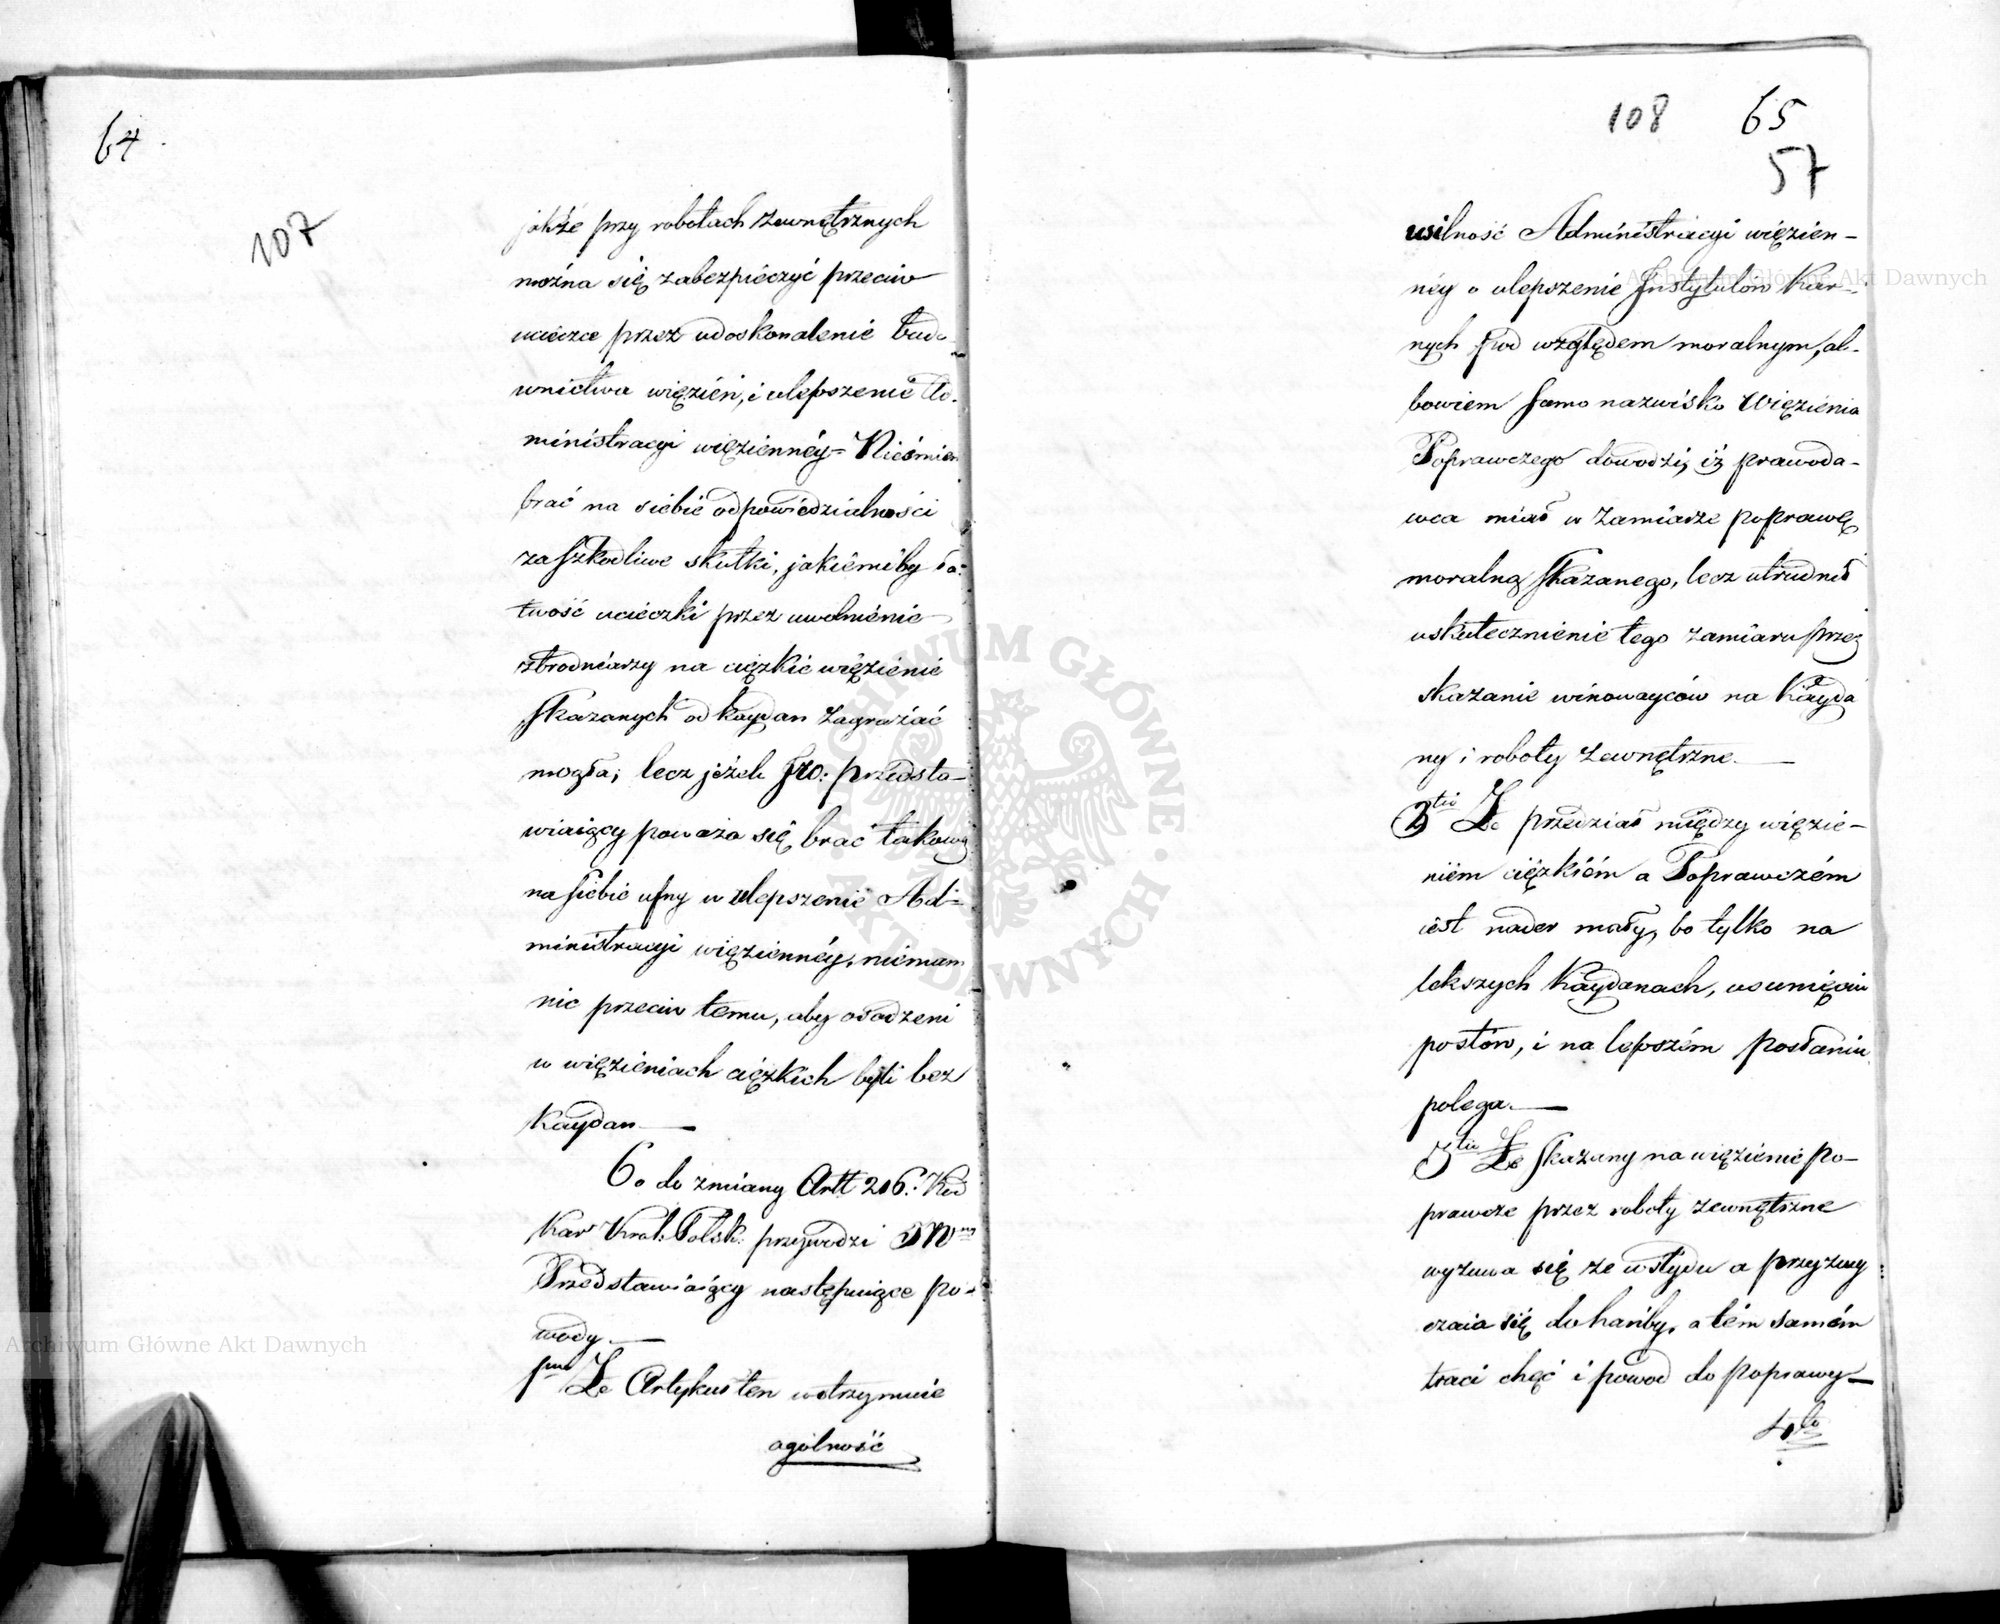 64
107
jakże przy robotach zewnętrznych
można się zabezpieczyć przeciw
ucieczce przez udoskonalenie budo-
wnictwa więzień, i ulepszenie Ad-
ministracyi więziennéy = Nieśmiem
brać na siebie odpowiedzialności
za szkodliwe skutki, jakiémiby ła-
twość ucieczki przez uwolnienie
zbrodniarzy na ciężkie więzienie
skazanych od kaydan zagrażać
mogła; lecz jeżeli JW: przedsta-
wiaiący poważa się brać takową
na siebie ufny w ulepszenie Ad-
ministracyi więziennéy, niemam
nic przeciw temu, aby osadzeni
w więzieniach ciężkich byli bez
Kaydan —
Co do zmiany Artt 206: Kod
Kar Krol: Polsk: przywodzi JW
Przedstawiaiący następuiące po-
wody —
1mo Że Artykuł ten wstrzymuie
ogólność
108 65
57
usilność Administracyi więzien-
néy o ulepszenie Instytutów Kar-
nych pod względem moralnym, al-
bowiem samo nazwisko Więzienia
Poprawczego dowodzi, iż prawoda-
wca miał w zamiarze poprawę
moralną skazanego, lecz utrudnił
uskutecznienie tego zamiaru przez
skazanie winowayców na Kayda
ny i roboty zewnętrzne —
2do Że przedział między więzie-
niem ciężkiém a Poprawczém
iest nader mały, bo tylko na
lekszych Kaydanach, usunięciu
postów, i na lepszém posłaniu
polega. —
3tio Że skazany na więzienie po-
prawcze przez roboty zewnętrzne
wyzuwa się ze wstydu a przyzwy
czaia się do hańby, a tém samém
traci chęć i powód do poprawy —
4to
Archiwum Główne Akt Dawnych
Archiwum Główne Akt Dawnych
ARCHIWUM GŁÓWNE · AKT DAWNYCH ·